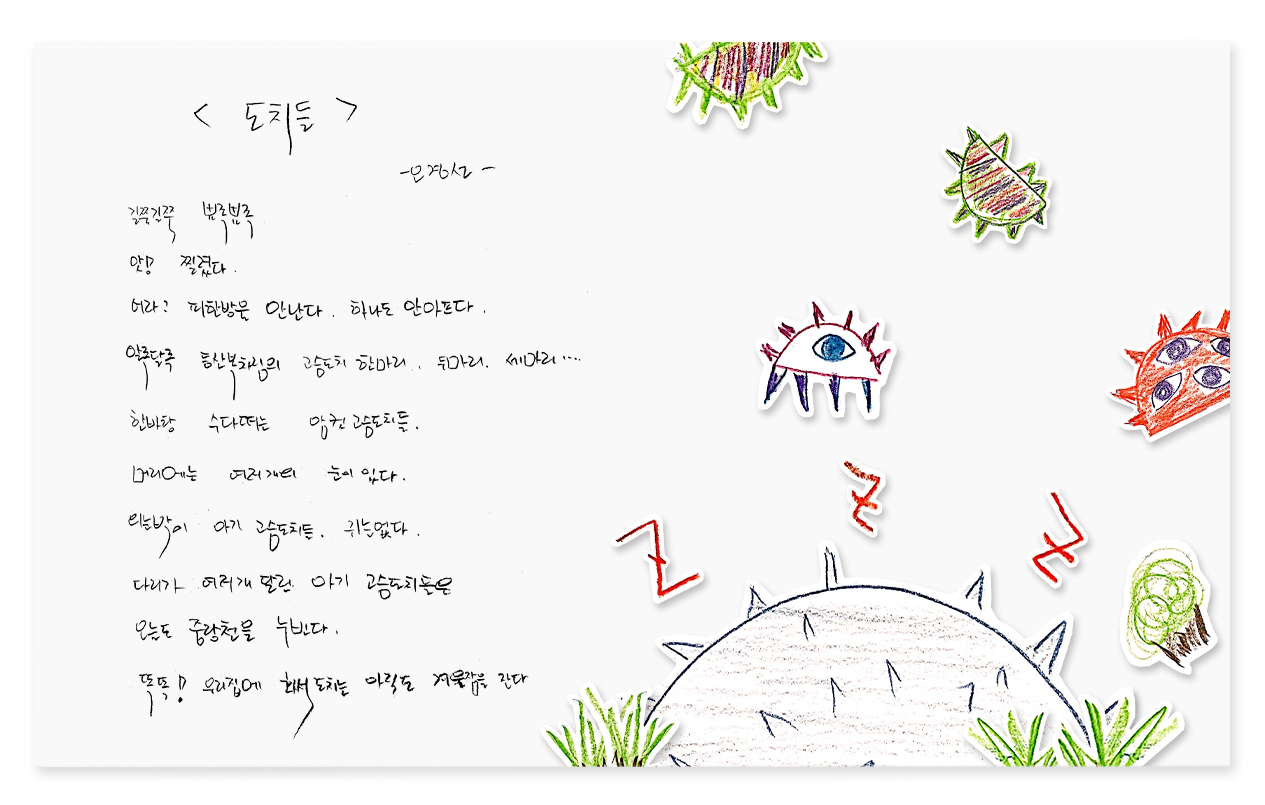 < 도치들 >
- 오경선 -
길쭉길쭉 뾰족뾰족
앗! 찔렸다.
어라? 피한방울 안난다. 하나도 안아프다.
알록달록 등산복차림의 고슴도치 한마리.. 두마리. 세마리....
한바탕 수다떠는 암컷 고슴도치들.
머리에는 여러개의 눈이 있다.
의는박이 아기 고슴도치들. 귀는없다.
다리가 여러개 달린 아기 고슴도치들은
오늘도 중랑천을 누빈다.
똑똑! 우리집에 회색도치는 아직도 겨울잠을 잔다
Z
Z
Z